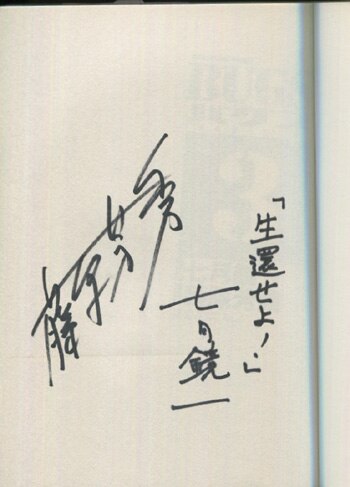 「生還せよ！」
七月鏡一
藤原芳秀